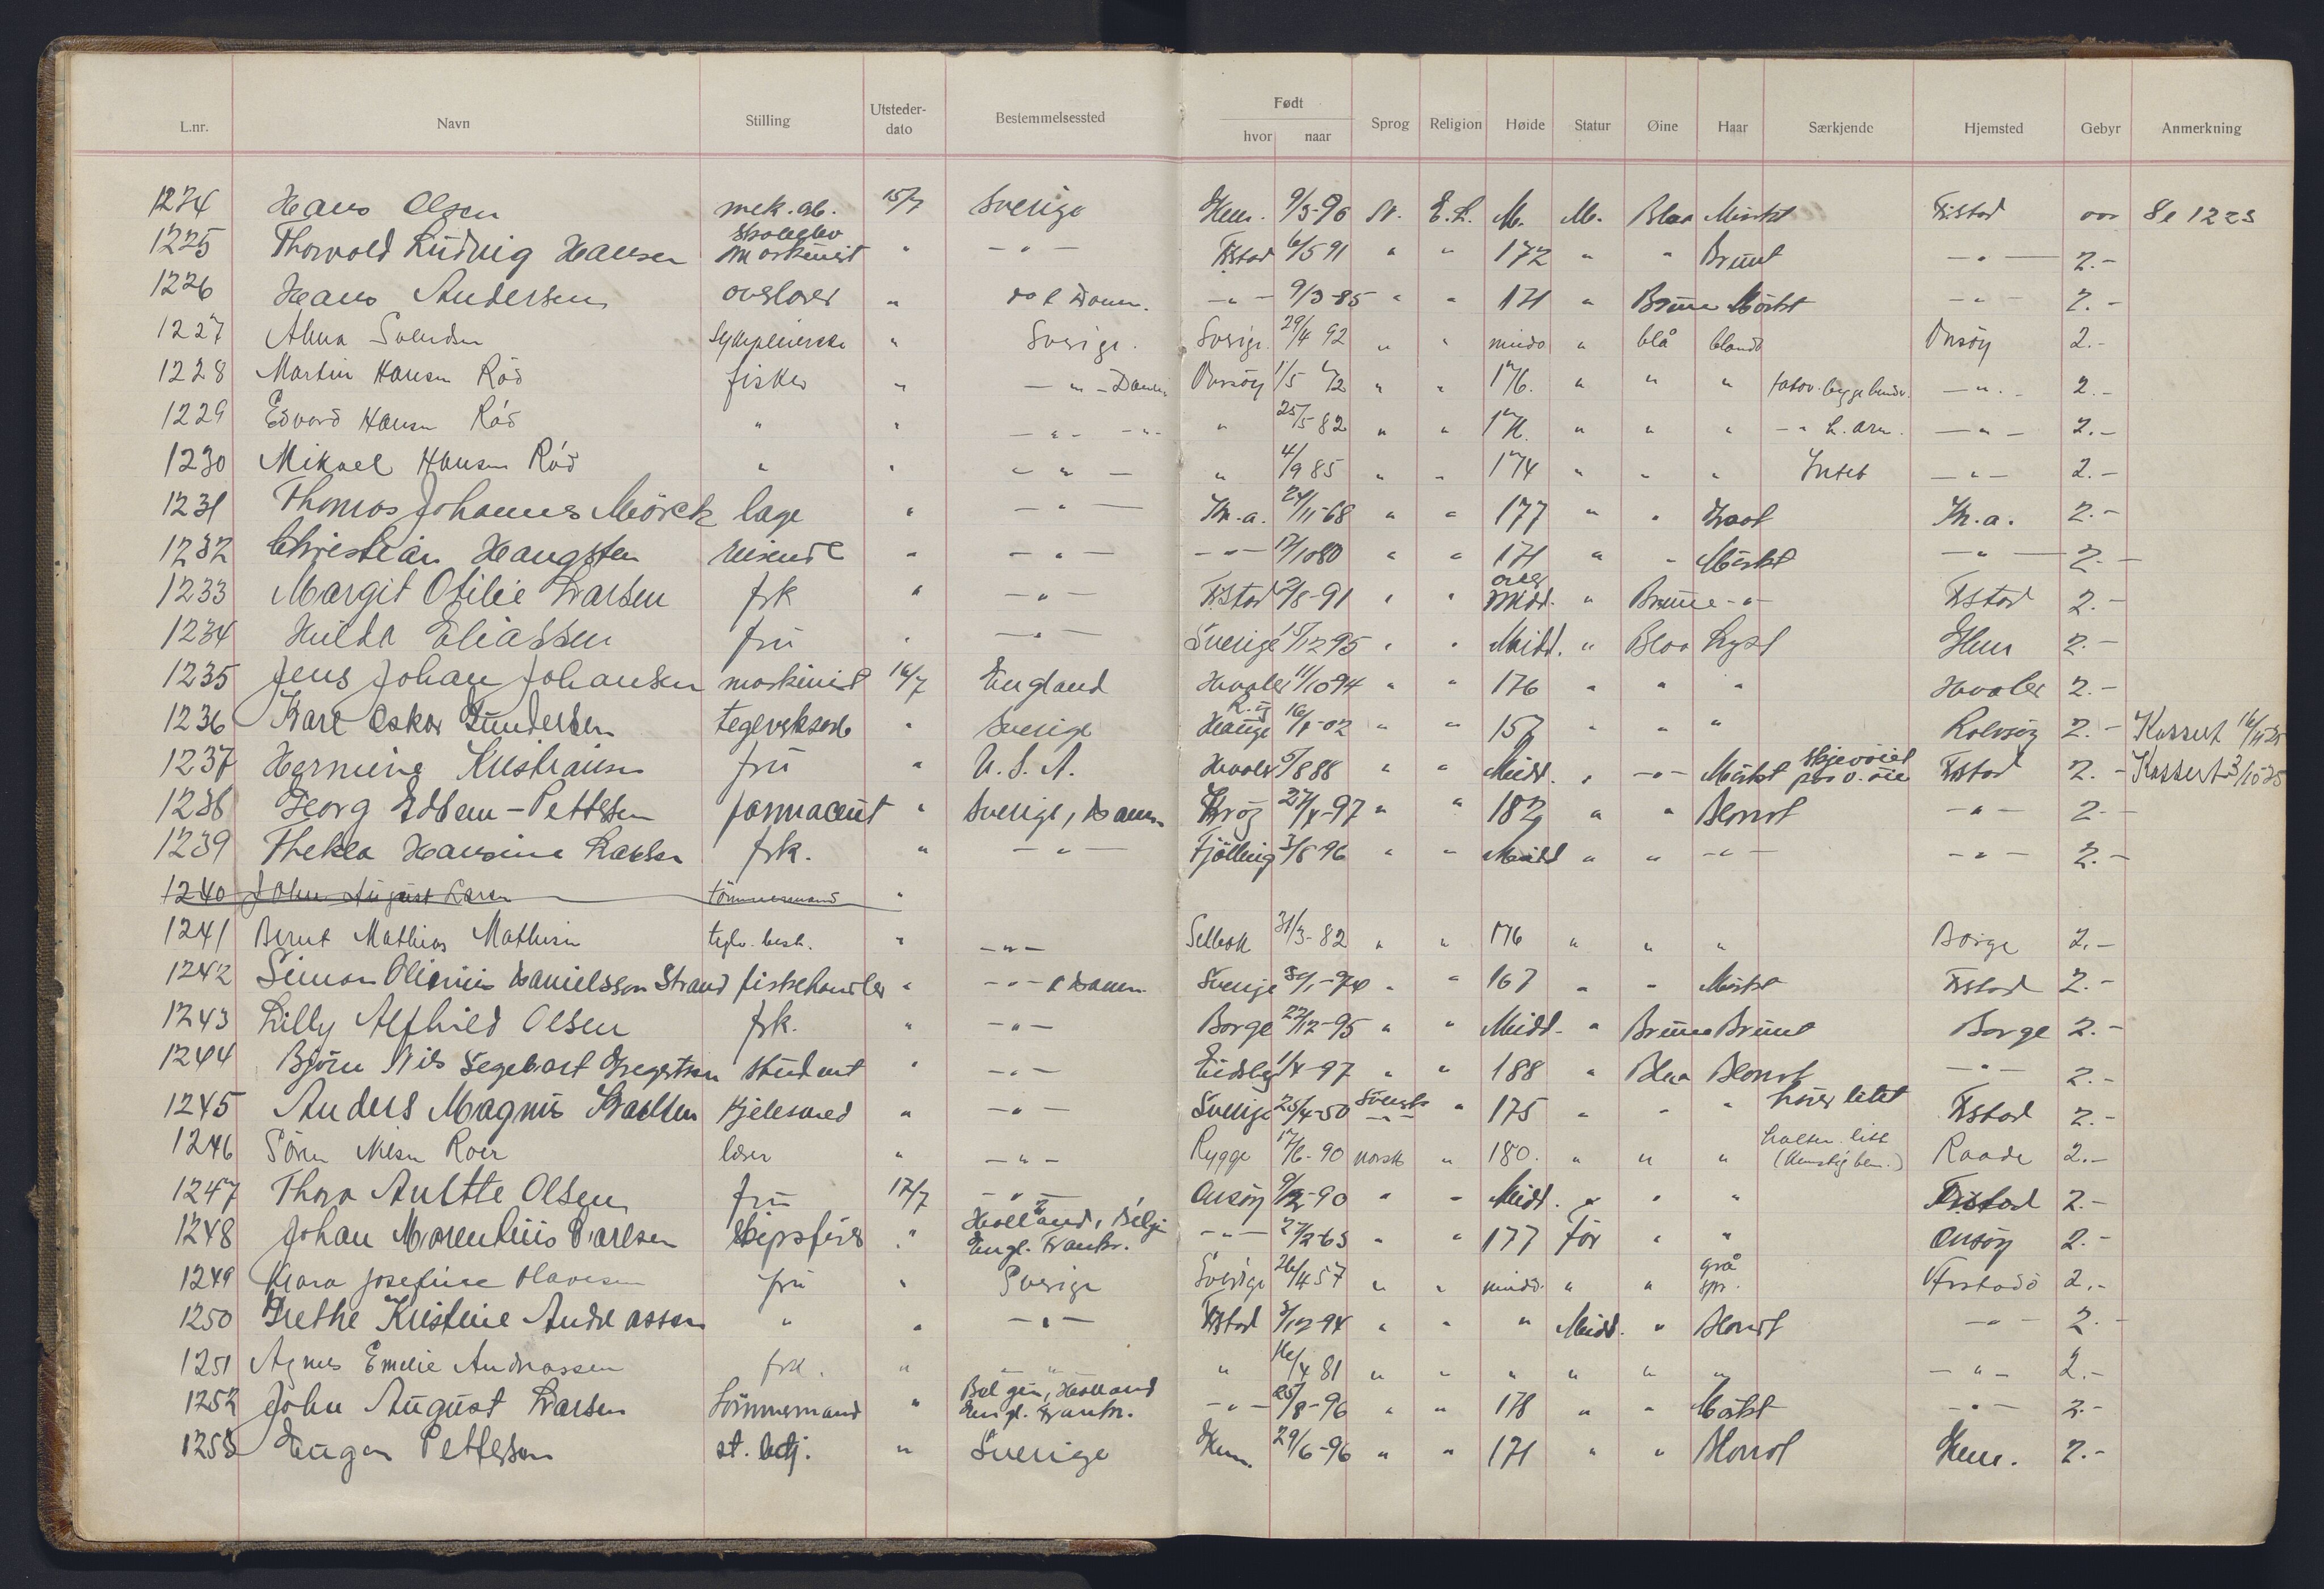 L.nr. Navn Stilling Utsteder-dato Bestemmelsessted Født hvor naar Sprog Religion Høide Statur Øine Haar Særkjende Hjemsted Gebyr Anmerkning
1224 Hans Olsen mek. arb. 15/7 Sverige Glem. 9/5-96 N. E.L. M. M. Blaa Mörkt Fr.stad Se 1223
1225 Thorvald Ludvig Hansen Maskinist " — " — Fr.stad 6/5 91 " " 172 " " Brunt — " — 2.-
1226 Hans Andersen " — " — 9/3-85 " " 171 " Brune Mörkt — " — 2.-
1227 Alma Svendsen " Sverige. Sverige. 29/4 92 " " midd " blå blondt Onsöy 2.-
1228 Martin Hansen Röd fisker " — " — Danm Onsöy 1/5 " " 176. " " " tatov. begge hender. — " — 2.-
1229 Edvard Hansen Röd " " — " — — " — " 25/5 82 " " " " " — " L. arm. — " — 2.-
1230 Mikael Hansen Röd " " — " — " 4/9 85 " " 174 " " " Intet — " — 2.-
1231 Thomas Johannes Mörck lage " — " — Kr.a. 24/11-68 " " 177 " " Graat Kr.a. 2.-
1232 Christian Haugsten reisende " — " — — " — 17/10 80 " " 171 " " Mörkt — " — 2.-
1233 Margit Otilie Larsen frk " — " — Fr.stad 2/8-91 " " over Midd. " Brune — " — Fr.stad 2.-
1234 Hilda Eliassen fru " — " — Sverige /12 95 " " Midd. " Blaa Lyst Glem 2.-
1235 Jens Johan Johansen maskinist 16/7 England Hvaler 11/10 94 " " 176 " " " Hvaler 2.-
1236 Karl Oskar Gundersen " Sverige R.öy Hauge 16/1-02 " " 157 " " " Rolvsöy 2.- Kassert 16/11-25
1237 Hermine Kristiansen fru " U.S.A. Hvaler 5/8 88 " " Midd. " — " — Mörkt skjevöiet paa v. öie Fr.stad 2.- Kassert 3/10-25
1238 Georg Edbem-Pettersen farmaceut " Sverige, Danm 27/4-97 " " 182 " " Blondt — " — 2.-
1239 Thekla Hansine Larsen frk. " — " — Fjölling 3/8-96 " " Midd " " — " — — " — 2.-
1240 John August Larsen tömmermand "
1241 Bernt Mathias Mathisen teglv. besk. " — " — Selbak 31/3-82 " " 176 " " " Borge 2.-
1242 Simon Olinius Danielsson Strand fiskehandler " — " — & Danm Sverige 30/1-74 " " 167 " " Mörkt Fr.stad 2.-
1243 Lilly Alfhild Olsen frk. " — " — Borge 22/12-95 " " Midd. " Brune Brunt Borge 2.-
1244 Björn Nils Segebart Gregertsen student " — " — Eidsberg 1/4-97 " " 188 " Blaa Blondt — " — 2.-
1245 Anders Magnus Karlsen Kjelesmed " — " — Sverige 25/4-50 Svensk " 175 " " " hörer litet Fr.stad 2.-
1246 Sören Nilsen Roer læser " — " — Rygge 17/6-90 norsk " 180. " " " halter litt (kunstig ben.) Raade 2.-
1247 Thora Anette Olsen fru 17/7 — " — Onsöy 9/2-90 " " Midd. " " " Fr.stad 2.-
1248 Johan Marentius Carlsen Skipsförer " Holland, Belgi Engl. Frankr. — " — 27/2-63 " " 177 för " " Onsöy 2.-
1249 Klara Josefine Olavesen fru " Sverige Sverige 26/4 57 " " midd. " " grå spr. Frstad 2.-
1250 Grethe Kristine Andreassen " " — " — Fr.stad 3/12-94 " " " Midd. " Blondt — " — 2.-
1251 Agnes Emelie Andreassen frk. " — " — " 16/4 81 " " " " " " — " — 2.-
1252 John August Larsen tömmermand " Belgien, Holland Engl. Frankr. — " — 25/8-96 " " 178 " " Mörkt — " — 2.-
1253 Eugen Pettersen st. betj. " Sverige Glem. 29/6-96 " " 171 " " Blondt Glem. 2.-